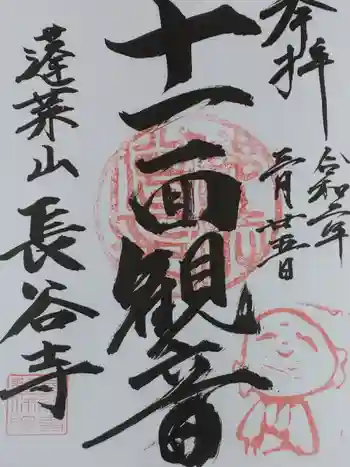 奉拝
令和二年
三月廿五日
十一面観音
蓬莱山
長谷寺